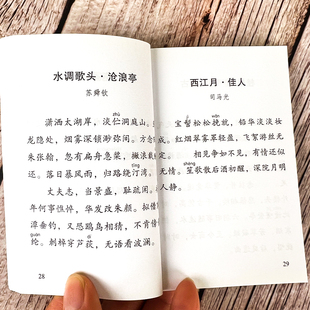 水调歌头·沧浪亭
苏舜钦
zhù
潇洒太湖岸，淡伫洞庭山
龙隐处，烟雾深锁渺弥间。方念
朱张翰，忽有扁舟急桨，撇浪载
tīng
还。落日暴风雨，归路绕汀湾。
丈夫志，当景盛，耻疏闲
年何事憔悴，华发改朱颜。拟借
潭垂钓，又恐鸥鸟相猜，不肯傍
guān dí
纶。刺棹穿芦荻，无语看波澜。
28
西江月·佳人
司马光
wǎn
宝髻松松挽就，铅华淡淡妆
红烟翠雾罩轻盈，飞絮游丝无
相见争如不见，有情还似
shēng
无情。笙歌散后酒初醒，深院月明
人静。
29